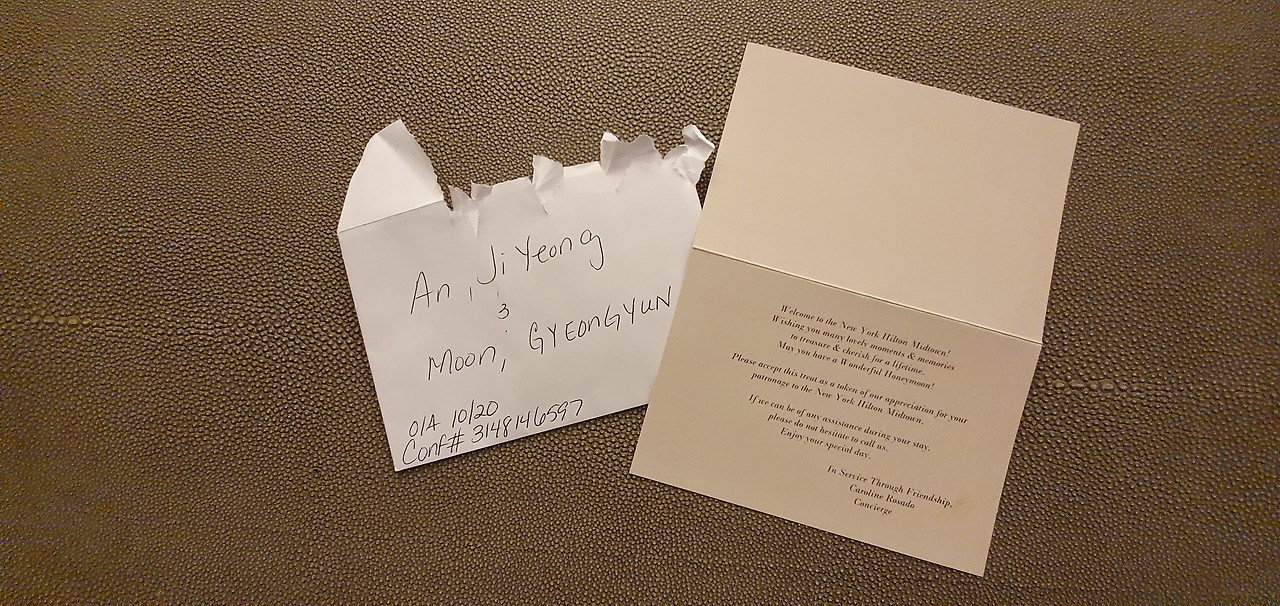 An, Ji Yeong
3
Moon, GYEONGYUN
O/A 10/20
Conf# 3148146597
Welcome to the New York Hilton Midtown!
Wishing you many lovely moments & memories
to treasure & cherish for a lifetime.
May you have a Wonderful Honeymoon!
Please accept this treat as a token of our appreciation for your
patronage to the New York Hilton Midtown.
If we can be of any assistance during your stay,
please do not hesitate to call us.
Enjoy your special day.
In Service Through Friendship,
Caroline Rosado
Concierge